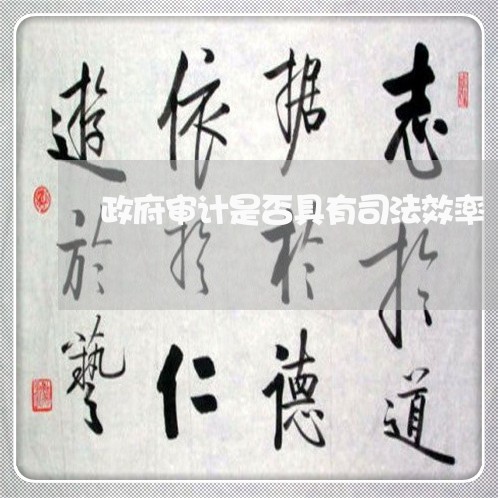 志扵道
据扵德
依扵仁
遊於藝
政府审计是否具有司法效率